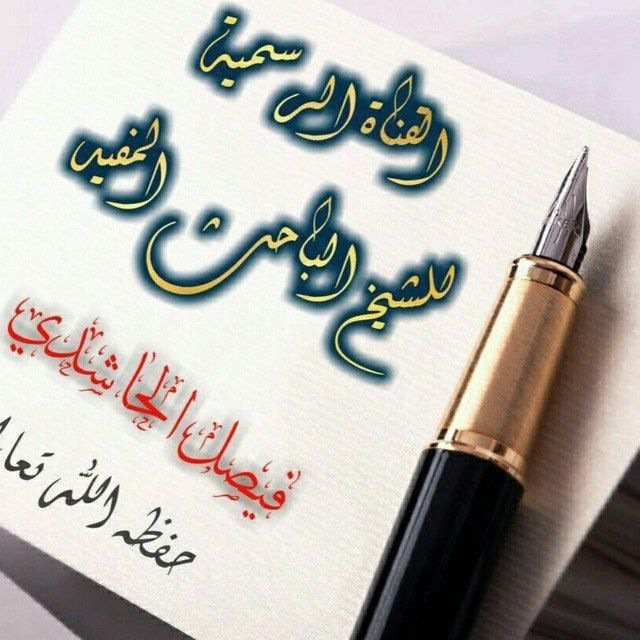 القناة الرسمية
للشيخ الباحث المفيد
فيصل الحاشدي
حفظه الله تعا